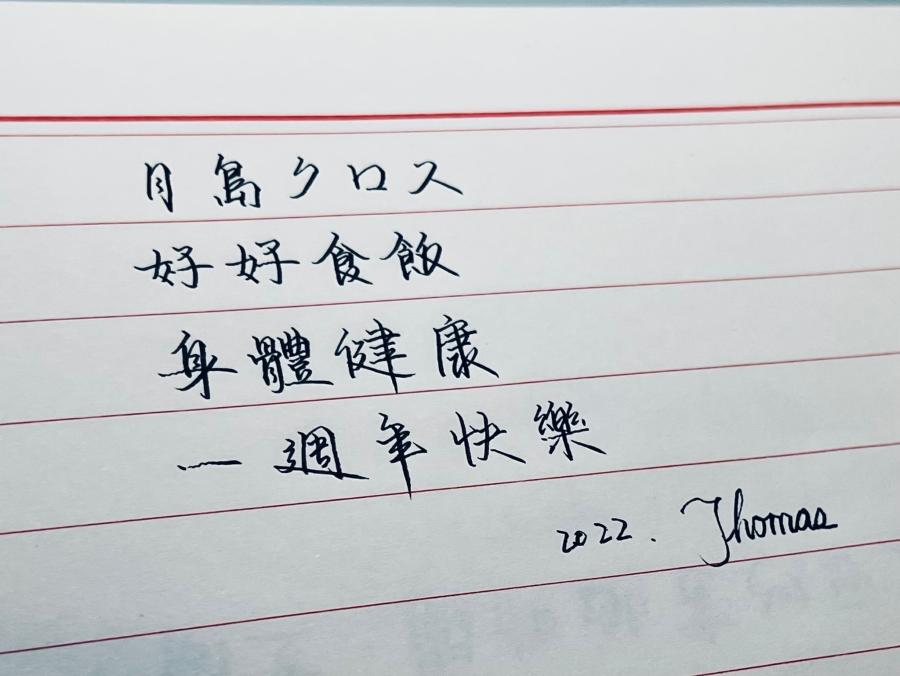 月島クロス
好好食飯
身體健康
一週年快樂
2022. Thomas